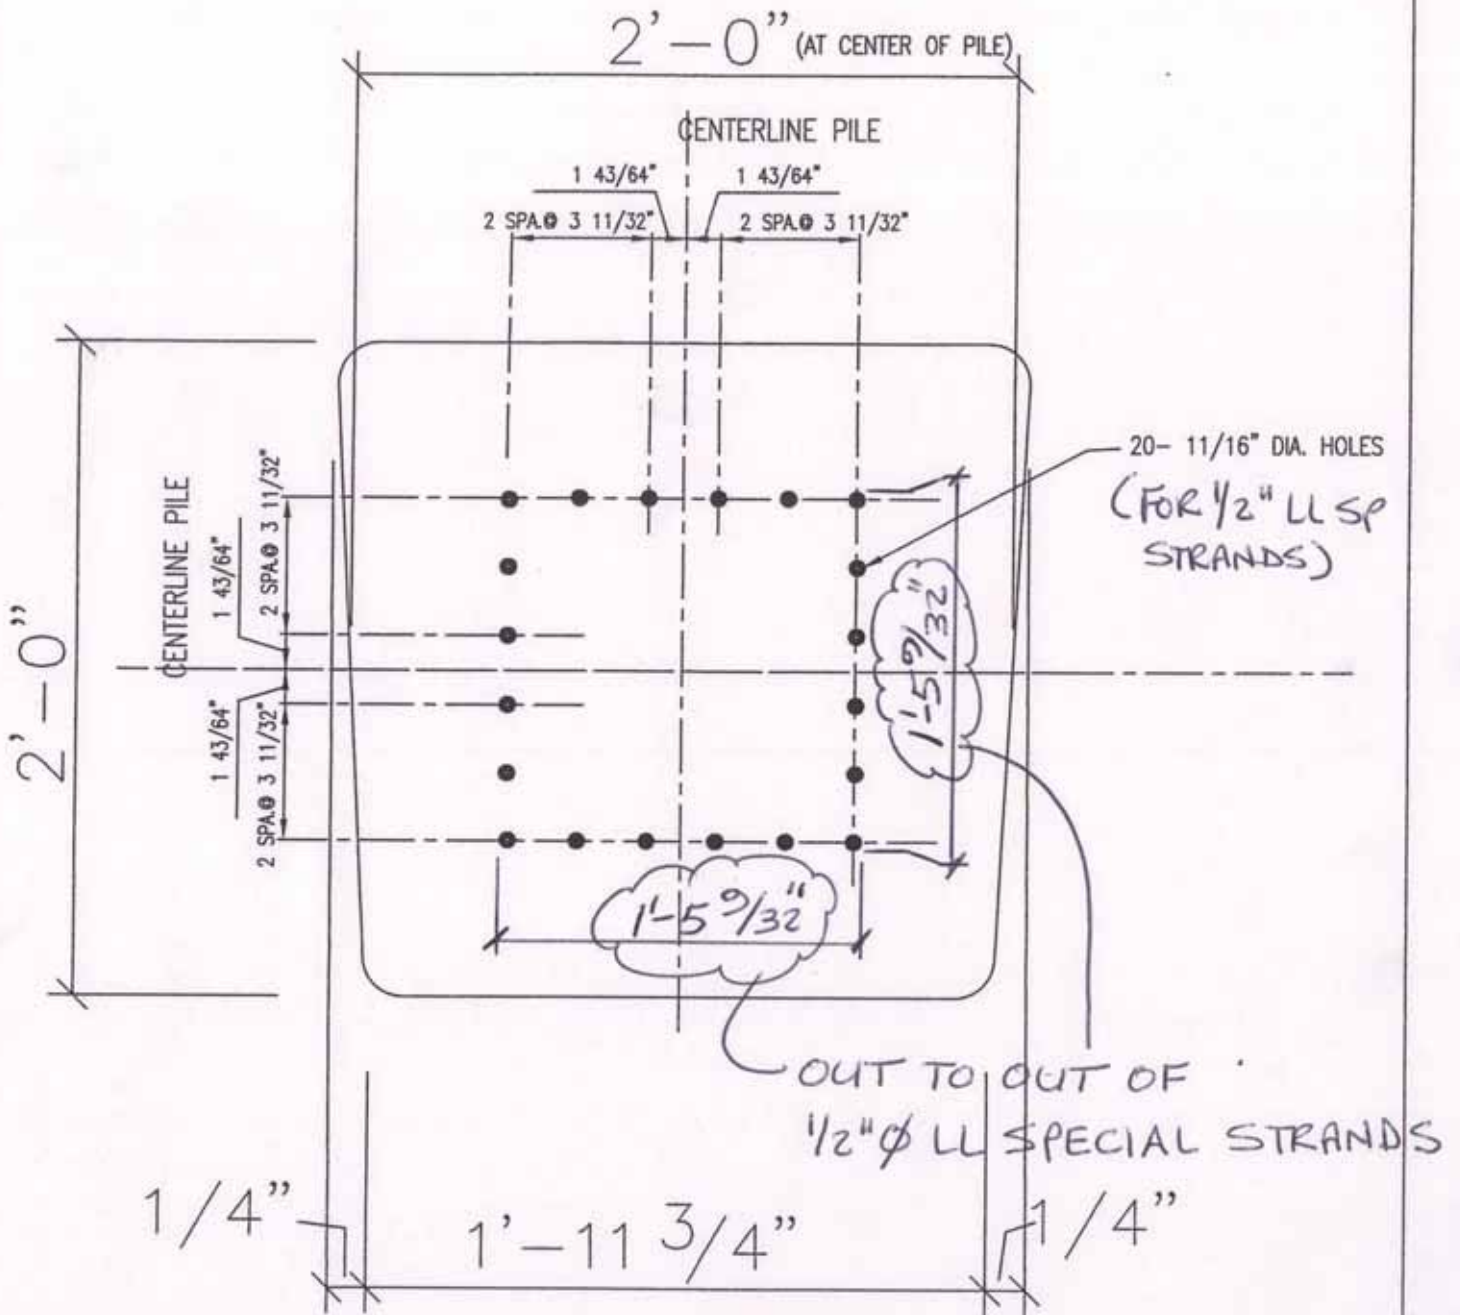 2'-0" (AT CENTER OF PILE)
CENTERLINE PILE
1 43/64" 1 43/64"
2 SPA.@ 3 11/32" 2 SPA.@ 3 11/32"
20- 11/16" DIA. HOLES
(FOR 1/2" LL SP
STRANDS)
2'-0"
CENTERLINE PILE
1 43/64"
2 SPA.@ 3 11/32"
1 43/64"
2 SPA.@ 3 11/32"
1'-5 9/32"
1'-5 9/32"
OUT TO OUT OF
1/2"Ø LL SPECIAL STRANDS
1/4" 1'-11 3/4" 1/4"